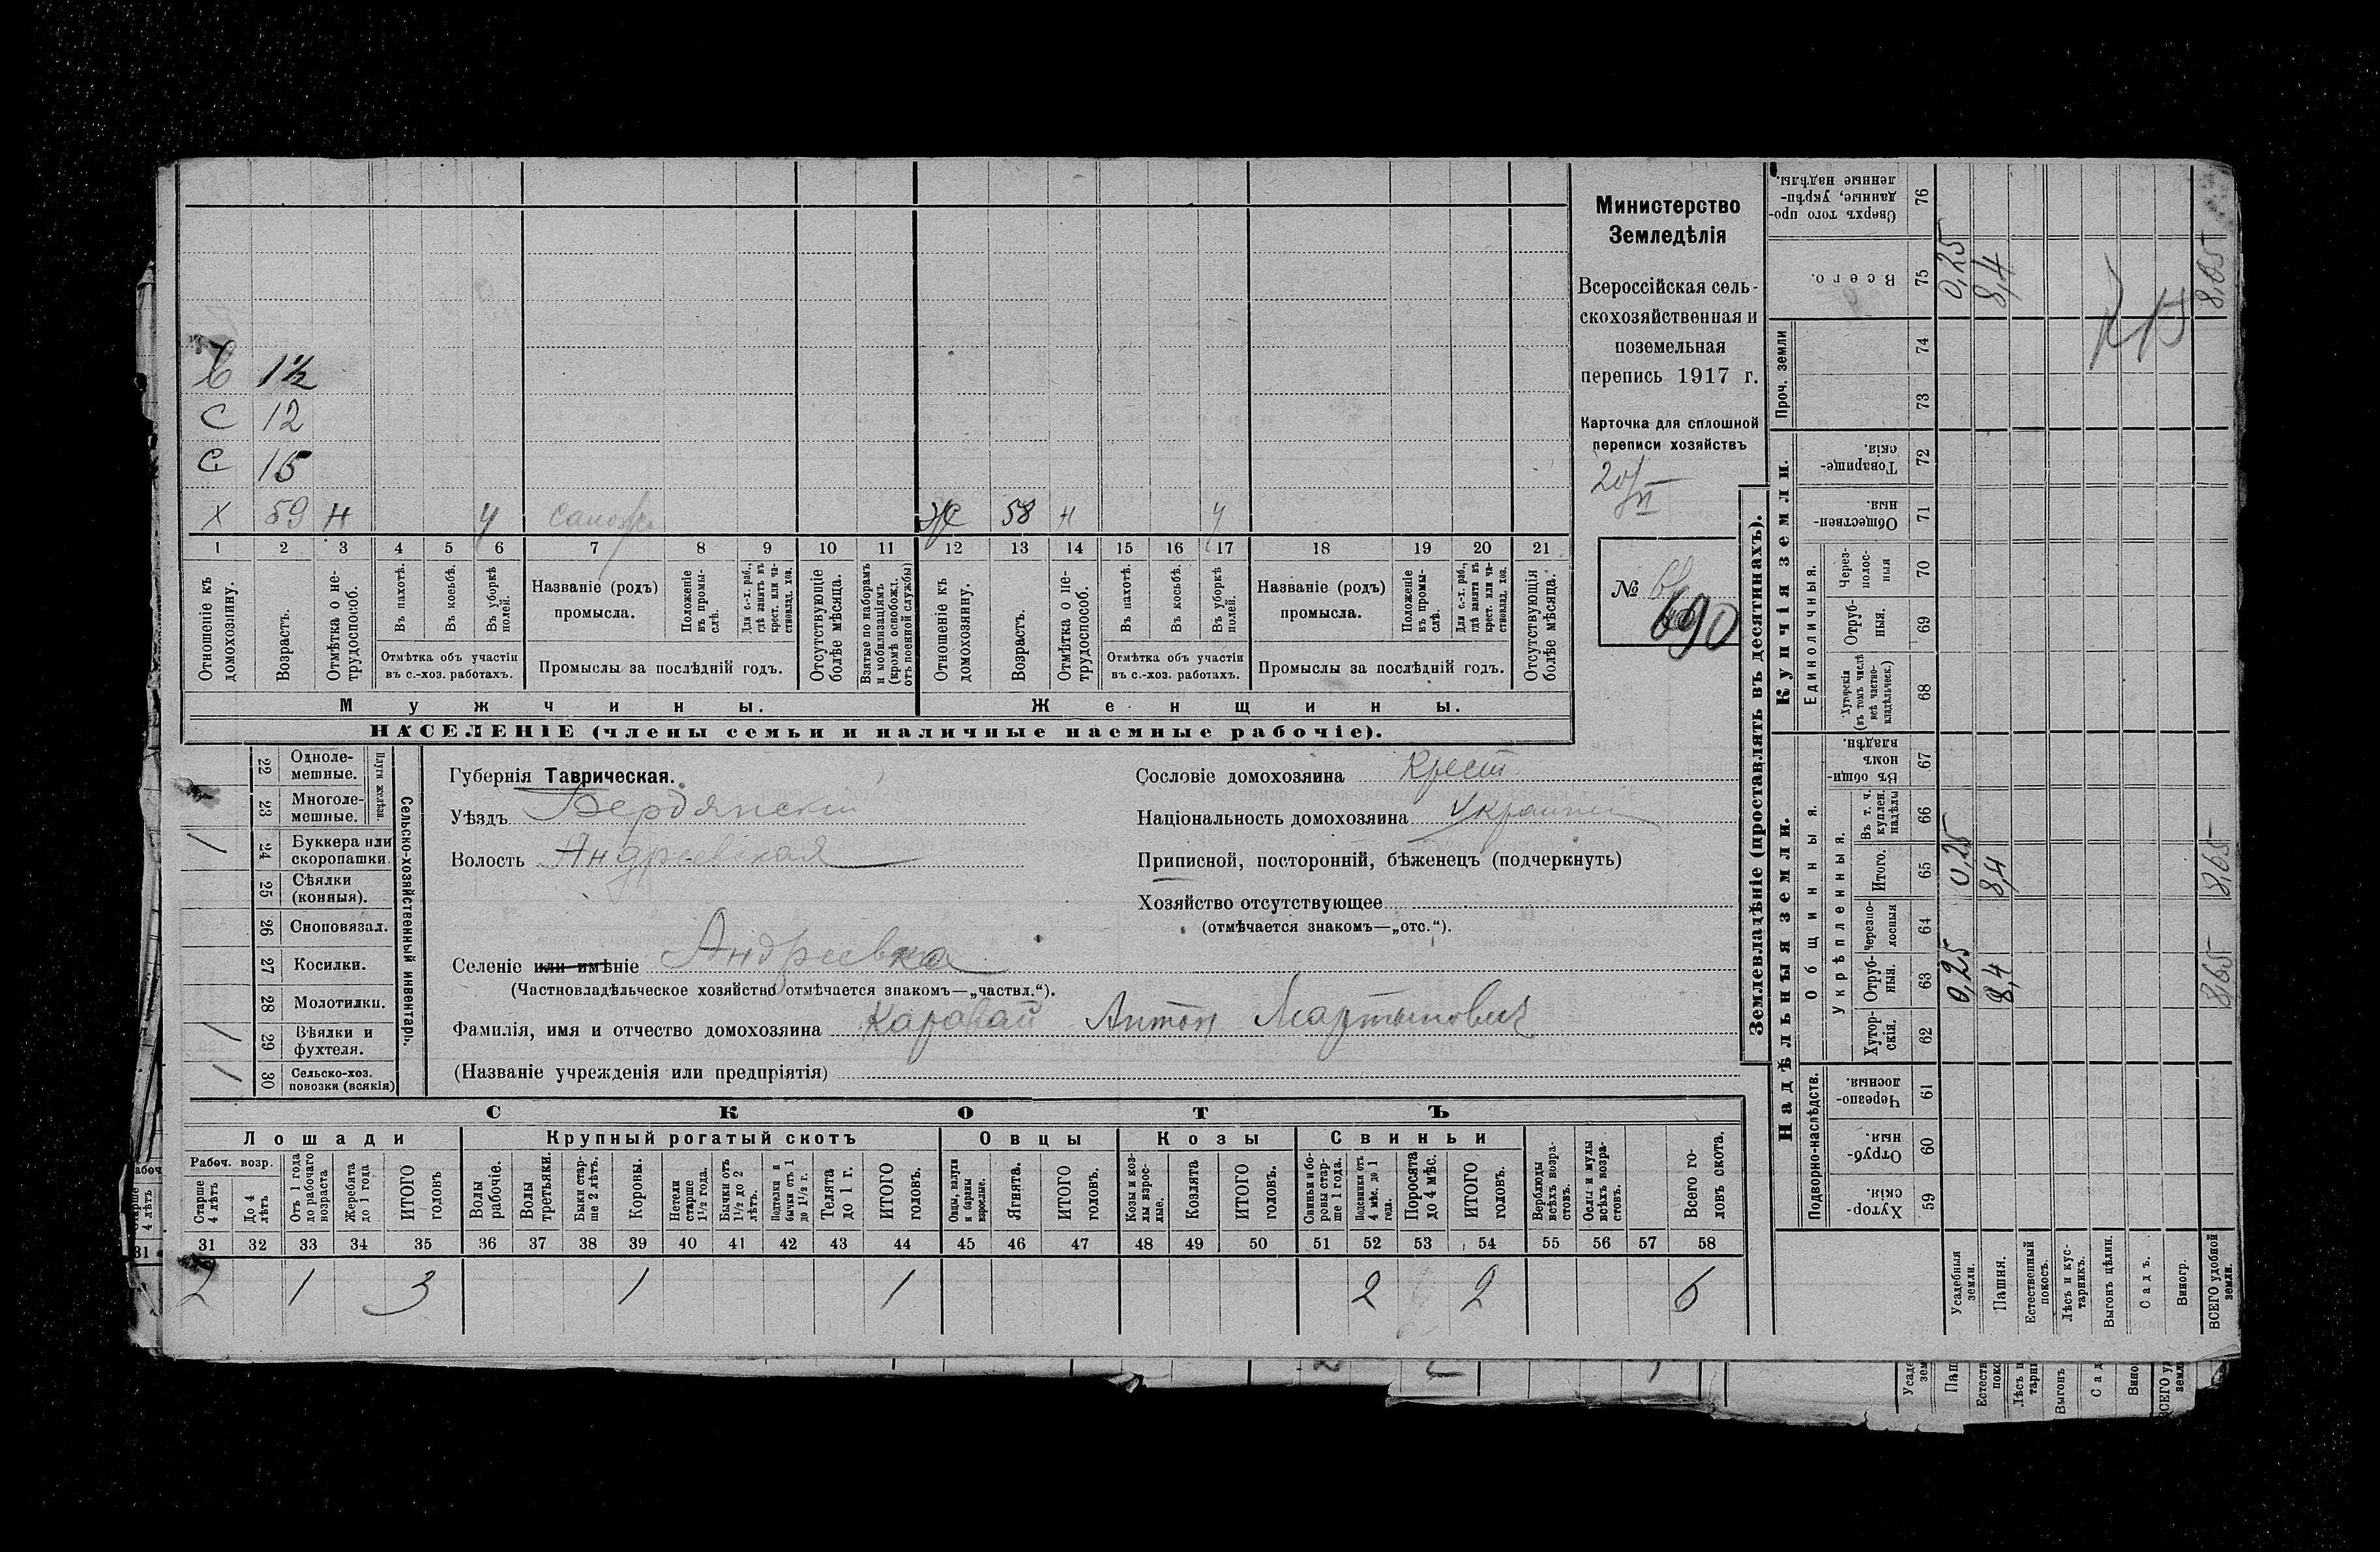 Министерство
Земледѣлія
Всероссійская сель-
скохозяйственная и
поземельная
перепись 1917 г.
Карточка для сплошной
переписи хозяйствъ
20/VI
№ 690
1½
С 12
С 15
Х 59 Н У
Ж 58 Н У
1 2 3 4 5 6 7 8 9 10 11 12 13 14 15 16 17 18 19 20 21
Отношеніе къ домохозяину.
Возрастъ.
Отмѣтка о не-трудоспособ.
Въ пахотѣ.
Въ косьбѣ.
Въ уборкѣ полей.
Отмѣтка объ участіи въ с.-хоз. работахъ.
Названіе (родъ) промысла.
Положеніе въ промы-слѣ.
Для с.-х. раб., гдѣ занятъ въ крест. или ча-стновлад. хоз.
Промыслы за послѣдній годъ.
Отсутствующіе болѣе мѣсяца.
Взятые по наборамъ и мобилизаціямъ (кромѣ освобожд. отъ военной службы)
Отношеніе къ домохозяину.
Возрастъ.
Отмѣтка о не-трудоспособ.
Въ пахотѣ.
Въ косьбѣ.
Въ уборкѣ полей.
Отмѣтка объ участіи въ с.-хоз. работахъ.
Названіе (родъ) промысла.
Положеніе въ промы-слѣ.
Для с.-х. раб., гдѣ занята въ крест. или ча-стновлад. хоз.
Промыслы за послѣдній годъ.
Отсутствующія болѣе мѣсяца.
Мужчины. Женщины.
НАСЕЛЕНІЕ (члены семьи и наличные наемные рабочіе).
Сельско-хозяйственный инвентарь.
Плуги желѣзн.
22 Одноле-мешные.
23 Многоле-мешные.
1 24 Буккера или скоропашки.
25 Сѣялки (конныя).
26 Сноповязал.
27 Косилки.
28 Молотилки.
1 29 Вѣялки и фухтеля.
1 30 Сельско-хоз. повозки (всякія)
Губернія Таврическая.
Уѣздъ Бердянский
Волость Андреевская
Селеніе или имѣніе Андреевка
(Частновладѣльческое хозяйство отмѣчается знакомъ—„частвл.“).
Фамилія, имя и отчество домохозяина Каравай Антон Мартынович
(Названіе учрежденія или предпріятія)
Сословіе домохозяина Крест.
Національность домохозяина Украин
Приписной, посторонній, бѣженецъ (подчеркнуть)
Хозяйство отсутствующее
(отмѣчается знакомъ—„отс.“).
СКОТЪ
Лошади Крупный рогатый скотъ Овцы Козы Свиньи
Рабоч. возр.
Старше 4 лѣтъ
До 4 лѣтъ
Отъ 1 года до рабочаго возраста
Жеребята до 1 года
ИТОГО головъ
Волы рабочіе.
Волы третьяки.
Быки стар-ше 2 лѣтъ.
Коровы.
Нетели старше 1½ года.
Бычки отъ 1½ до 2 лѣтъ.
Подтелки и бычки отъ 1 до 1½ г.
Телята до 1 г.
ИТОГО головъ.
Овцы, валухи и бараны взрослые.
Ягнята.
ИТОГО головъ.
Козы и коз-лы взрос-лые.
Козлята
ИТОГО головъ.
Свиньи и бо-ровы стар-ше 1 года.
Подсвинки отъ 4 мѣс. до 1 года.
Поросята до 4 мѣс.
ИТОГО головъ.
Верблюды всѣхъ возра-стовъ.
Ослы и мулы всѣхъ возра-стовъ.
Всего го-ловъ скота.
31 32 33 34 35 36 37 38 39 40 41 42 43 44 45 46 47 48 49 50 51 52 53 54 55 56 57 58
2 1 3 1 1 2 2 6
Землевладѣніе (проставлять въ десятинахъ).
Надѣльныя земли. Купчія земли. Проч. земли
Подворно-наслѣдств.
Общинныя.
Укрѣпленныя.
Единоличныя.
Сверхъ того про-данные, укрѣп-ленные надѣлы. 76
Всего. 75 0,25 8,4 8,65
74
73
Товарище-скія. 72
Обществен-ныя. 71
Через-полос-ныя 70
Отруб-ныя. 69
Хуторскія (въ томъ числѣ всѣ частно-владѣльческ.) 68
Въ общин-номъ владѣн. 67
Въ т. ч. куплен. надѣлы 66
Итого. 65 0,25 8,4 8,65
Черезпо-лосныя 64
Отруб-ныя. 63 0,25 8,4 8,65
Хутор-скія. 62
Черезпо-лосныя. 61
Отруб-ныя. 60
Хутор-скія. 59
Усадебныя земли.
Пашня.
Естественный покосъ.
Лѣсъ и кус-тарникъ.
Выгонъ цѣлин.
Садъ.
Виногр.
ВСЕГО удобной земли.